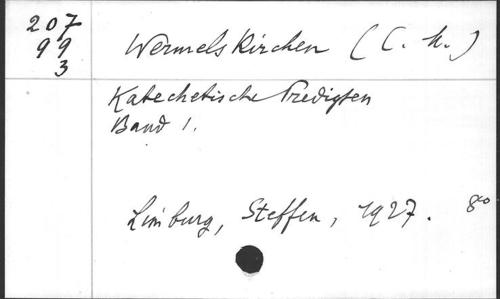 207
99
3
Wermelskirchen (C. M.)
Katechetische Predigten
Band 1.
Limburg, Steffen, 1927. 8°